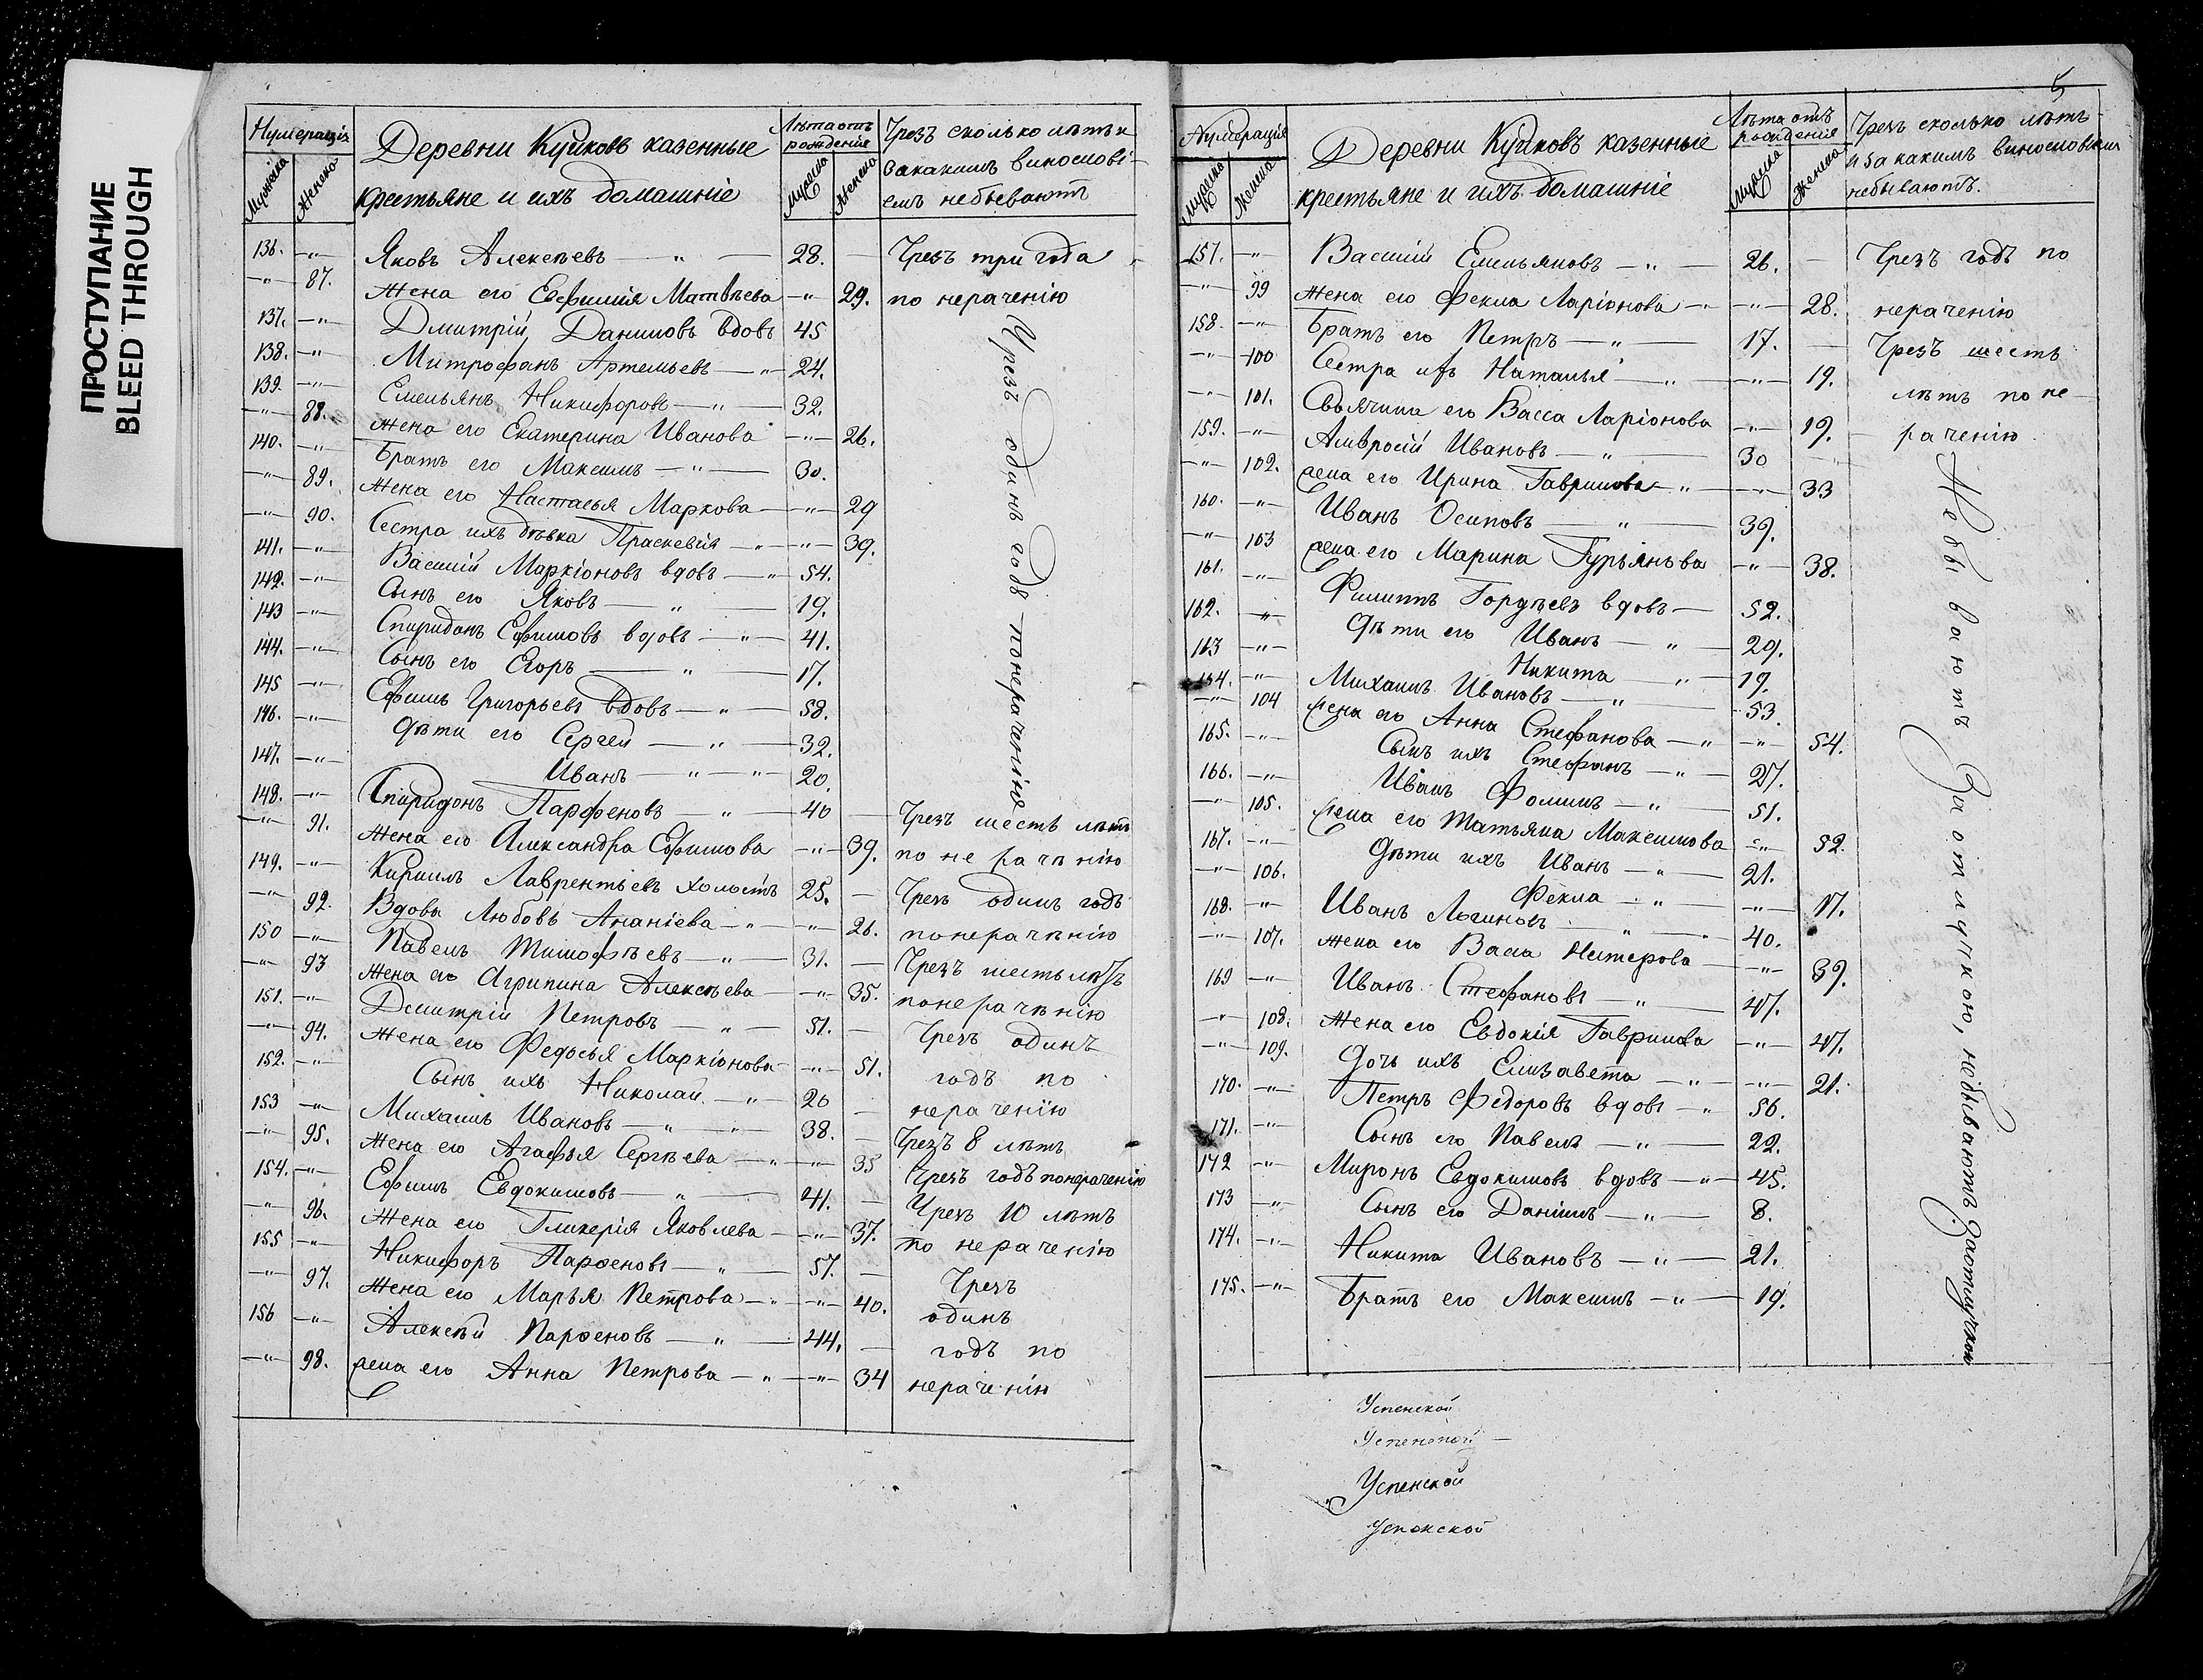 ПРОСТУПАНИЕ
BLEED THROUGH
Нумерація
Мужеска
Женска
Деревни Куйковъ казенные
крестьяне и ихъ домашніе
Лѣта отъ
рожденія
Мужска
Женска
Чрезъ сколько лѣтъ и
закакимъ винословi-
емъ небываютъ
136. —"— Яковъ Алексѣевъ — " — 28. — Чрезъ три года
—"— 87. Жена его Евфимія Матвѣева —"— 29. по нераченію
137. —"— Дмитрій Даниловъ вдовъ 45
138. —"— Митрофанъ Артемьевъ —"— 24.
139. —"— Емельянъ Никифоровъ —"— 32.
—"— 88. Жена его Екатерина Иванова —"— 26.
140. —"— Братъ его Максимъ —"— 30.
—"— 89. Жена его Настасья Маркова —"— 29
—"— 90. Сестра ихъ дѣвка Праскевія —"— —"— 39.
141. —"— Василій Маркіоновъ вдовъ —"— 54.
142. —"— Сынъ его Яковъ — " — 19.
143 —"— Спиридонъ Ефимовъ вдовъ —"— 41.
144. —"— Сынъ его Егоръ — " — 17.
145 —"— Ефимъ Григорьевъ вдовъ —"— 58.
146. —"— Дѣти его Сергей —"— 32.
147. —"— Иванъ —"—"— 20.
Чрезъ одинъ годъ понераченію
148. —"— Спиридонъ Парфеновъ —"— 40 — Чрезъ шесть лѣтъ
—"— 91. Жена его Александра Ефимова —"— 39. по не рачѣнію
149. —"— Кирилъ Лаврентьевъ холостъ 25. — Чрезъ одинъ годъ
—"— 92. Вдова Любовь Ананіева —"— —"— 26. понерачѣнію
150 —"— Павелъ Тимофѣевъ —"— 31. — Чрезъ шесть лѣтъ
—"— 93 Жена его Агрипина Алексѣева —"— 35. понерачѣнію
151. —"— Дмитрій Петровъ —"— 51. — Чрезъ одинъ
—"— 94. Жена его Федосья Маркіонова —"— 51. годъ по
152. —"— Сынъ ихъ Николай —"— 20 — нераченію
153 —"— Михаилъ Ивановъ —"—"— 38. — Чрезъ 8 лѣтъ
—"— 95. Жена его Агафья Сергѣева —"— —"— 35 Чрезъ годъ понераченію
154. —"— Ефимъ Евдокимовъ —"— 41. — Чрезъ 10 лѣтъ
—"— 96. Жена его Гликерія Яковлева —"— 37. по нераченію
155 —"— Никифоръ Парфеновъ —"— 57. — Чрезъ
—"— 97. Жена его Марья Петрова —"— —"— 40. одинъ
156 —"— Алексѣй Парфеновъ —"— 44. — годъ по
—"— 98. жена его Анна Петрова —"— —"— 34 нераченію
5
Нумерація
Мужеска
Женска
Деревни Куйковъ казенные
крестьяне и ихъ домашніе
Лѣта отъ
рожденія
Мужска
Женска
Чрезъ сколько лѣтъ
и за какимъ винословіемъ
небываютъ.
157. —"— Василій Емельяновъ —"— 26. — Чрезъ годъ по
—"— 99 Жена его Фекла Ларіонова —"— —"— 28. нераченію
158. —"— Братъ его Петръ —"— 17. — Чрезъ шесть
—"— 100 Сестра ихъ Наталья —"— —"— 19. лѣтъ по не-
—"— 101. Своячина его Васса Ларіонова —"— 19. раченію
159. —"— Амвросій Ивановъ —"— 30
—"— 102. жена его Ирина Гаврилова —"— —"— 33
160. —"— Иванъ Осиповъ —"— 39.
—"— 103 жена его Марина Гурьянова —"— 38.
161. —"— Филиппъ Гордѣевъ вдовъ — 52.
162. —"— Дѣти его Иванъ —"— 29.
163 —"— Никита —"— 19.
164. —"— Михаилъ Ивановъ —"— 53.
—"— 104 жена его Анна Стефанова —"— —"— 54.
165. —"— Сынъ ихъ Стефанъ —"— 27.
166. —"— Иванъ Фоминъ —"— 51.
—"— 105. жена его Татьяна Максимова —"— 52.
167. —"— Дѣти ихъ Иванъ —"— 21.
—"— 106. Фекла —"— —"— 17.
168. —"— Иванъ Логиновъ —"— 40.
—"— 107. жена его Васса Нестерова —"— 39.
169 —"— Иванъ Стефановъ —"— 47.
—"— 108. Жена его Евдокія Гаврилова —"— 47.
—"— 109. Дочь ихъ Елизавета —"— —"— 21.
170. —"— Петръ Федоровъ вдовъ —"— 56.
171. —"— Сынъ его Павелъ —"— 22.
172 —"— Миронъ Евдокимовъ вдовъ —"— 45.
173 —"— Сынъ его Даніилъ —"— 8.
174. —"— Никита Ивановъ —"— 21.
175. —"— Братъ его Максимъ —"— 19.
Небываютъ За отлучкою, небываютъ Заотлучкою
Успенской
Успенской —
Успенской
Успенской